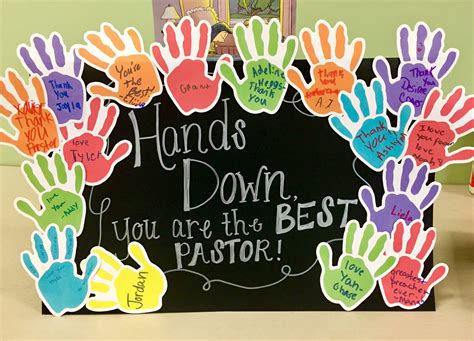 Hands
Down,
you are the BEST
PASTOR!
Thank
you
Jayla
You're
the
Best
Grant
Adeline
Heggs
Thank you
Thank you
A.J
Thank
You
Desire
THANK
YOU
Pastor
love
Tyler
Thank
you
Ashlyn
I love
you
love
love
You
Lida
love
Yan
greatest
preacher
ever
Jordan